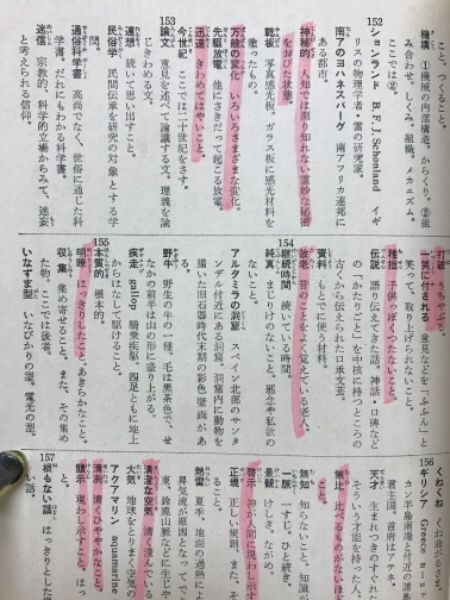 こと。つくること。
機構 ①機械の内部構造。からくり。②組
み合わせ。しくみ。組織。メカニズム。
ここでは②。
152
ションランド B.F.J. Schonland イギ
リスの物理学者・雷の研究家。
南アのヨハネスバーグ 南アフリカ連邦に
ある都市。
神秘的 人知では測り知れない霊妙な秘密
をおびた状態。
乾板 写真感光板。ガラス板に感光材料を
塗ったもの。
万般の変化 いろいろさまざまな変化。
先駆放電 他にさきだって起こる放電。
迅速 きわめてはやいこと。
今世紀 ここでは二十世紀をさす。
153
論文 意見を述べて論議する文。理義を論
じきわめる文。
連想 続いて思い出すこと。
民俗学 民間伝承を研究の対象とする学
問。
通俗科学書 高尚でなく、世俗に通じた科
学書。だれにもわかる科学書。
迷信 宗教的、科学的立場からみて、迷妄
と考えられる信仰。
打破 うちやぶる。
一笑に付される 意見などを「ふふん」と
笑って、取り上げられないこと。
稚拙 子供っぽくつたないこと。
伝説 語り伝えてきた話。神話・口碑など
の「かたりごと」を中核に持つところの
古くから伝えられた口承文芸。
資料 もとでに使う材料。
故老 昔のことをよく覚えている老人。
154
継続時間 続いている時間。
純真 まじりけのないこと。邪念や私欲の
ないこと。
アルタミラの洞窟 スペイン北部のサンタ
ンデル付近にある洞窟。洞窟内に動物を
描いた旧石器時代末期の彩色壁画があ
る。
野牛 野生の牛の一種。毛は黒茶色で、せ
なかの前半は山の形に盛り上がる。
疾走 gallop 騎乗疾駆。四足ともに地上
からはなして駆けること。
155
本質的 根本的。
明瞭 はっきりしたこと。あきらかなこと。
収集 集め寄せること。また、その集め
た物。ここでは後者。
いなずま型 いなびかりの型。電光の型。
156
くねくね
ギリシア Greece
カン半島南端と付近の諸島
君主国。首府はアテネ。
天才 生まれつきのすぐれた
そういう才能を持った人。
無比 比べるものがないほ
こと。
無知 知らないこと。知識が
一脈 一すじ。ひと続き。
景観 けしき。ながめ。
啓示 神が人間に現わし示す
正規 正しい規則。また、そ
ること。
熱雷 夏季、地面の過熱によ
昇気流が原因となってで
東、鈴鹿山脈などに生じや
清澄な空気 清く澄んでいる
大気 地球をとりまく空気の
アクアマリン aquamarine
清冽 清くひややかなこと。
顕示 現わし示すこと。はっ
と。
157
根もない話 はっきりとした
い話。